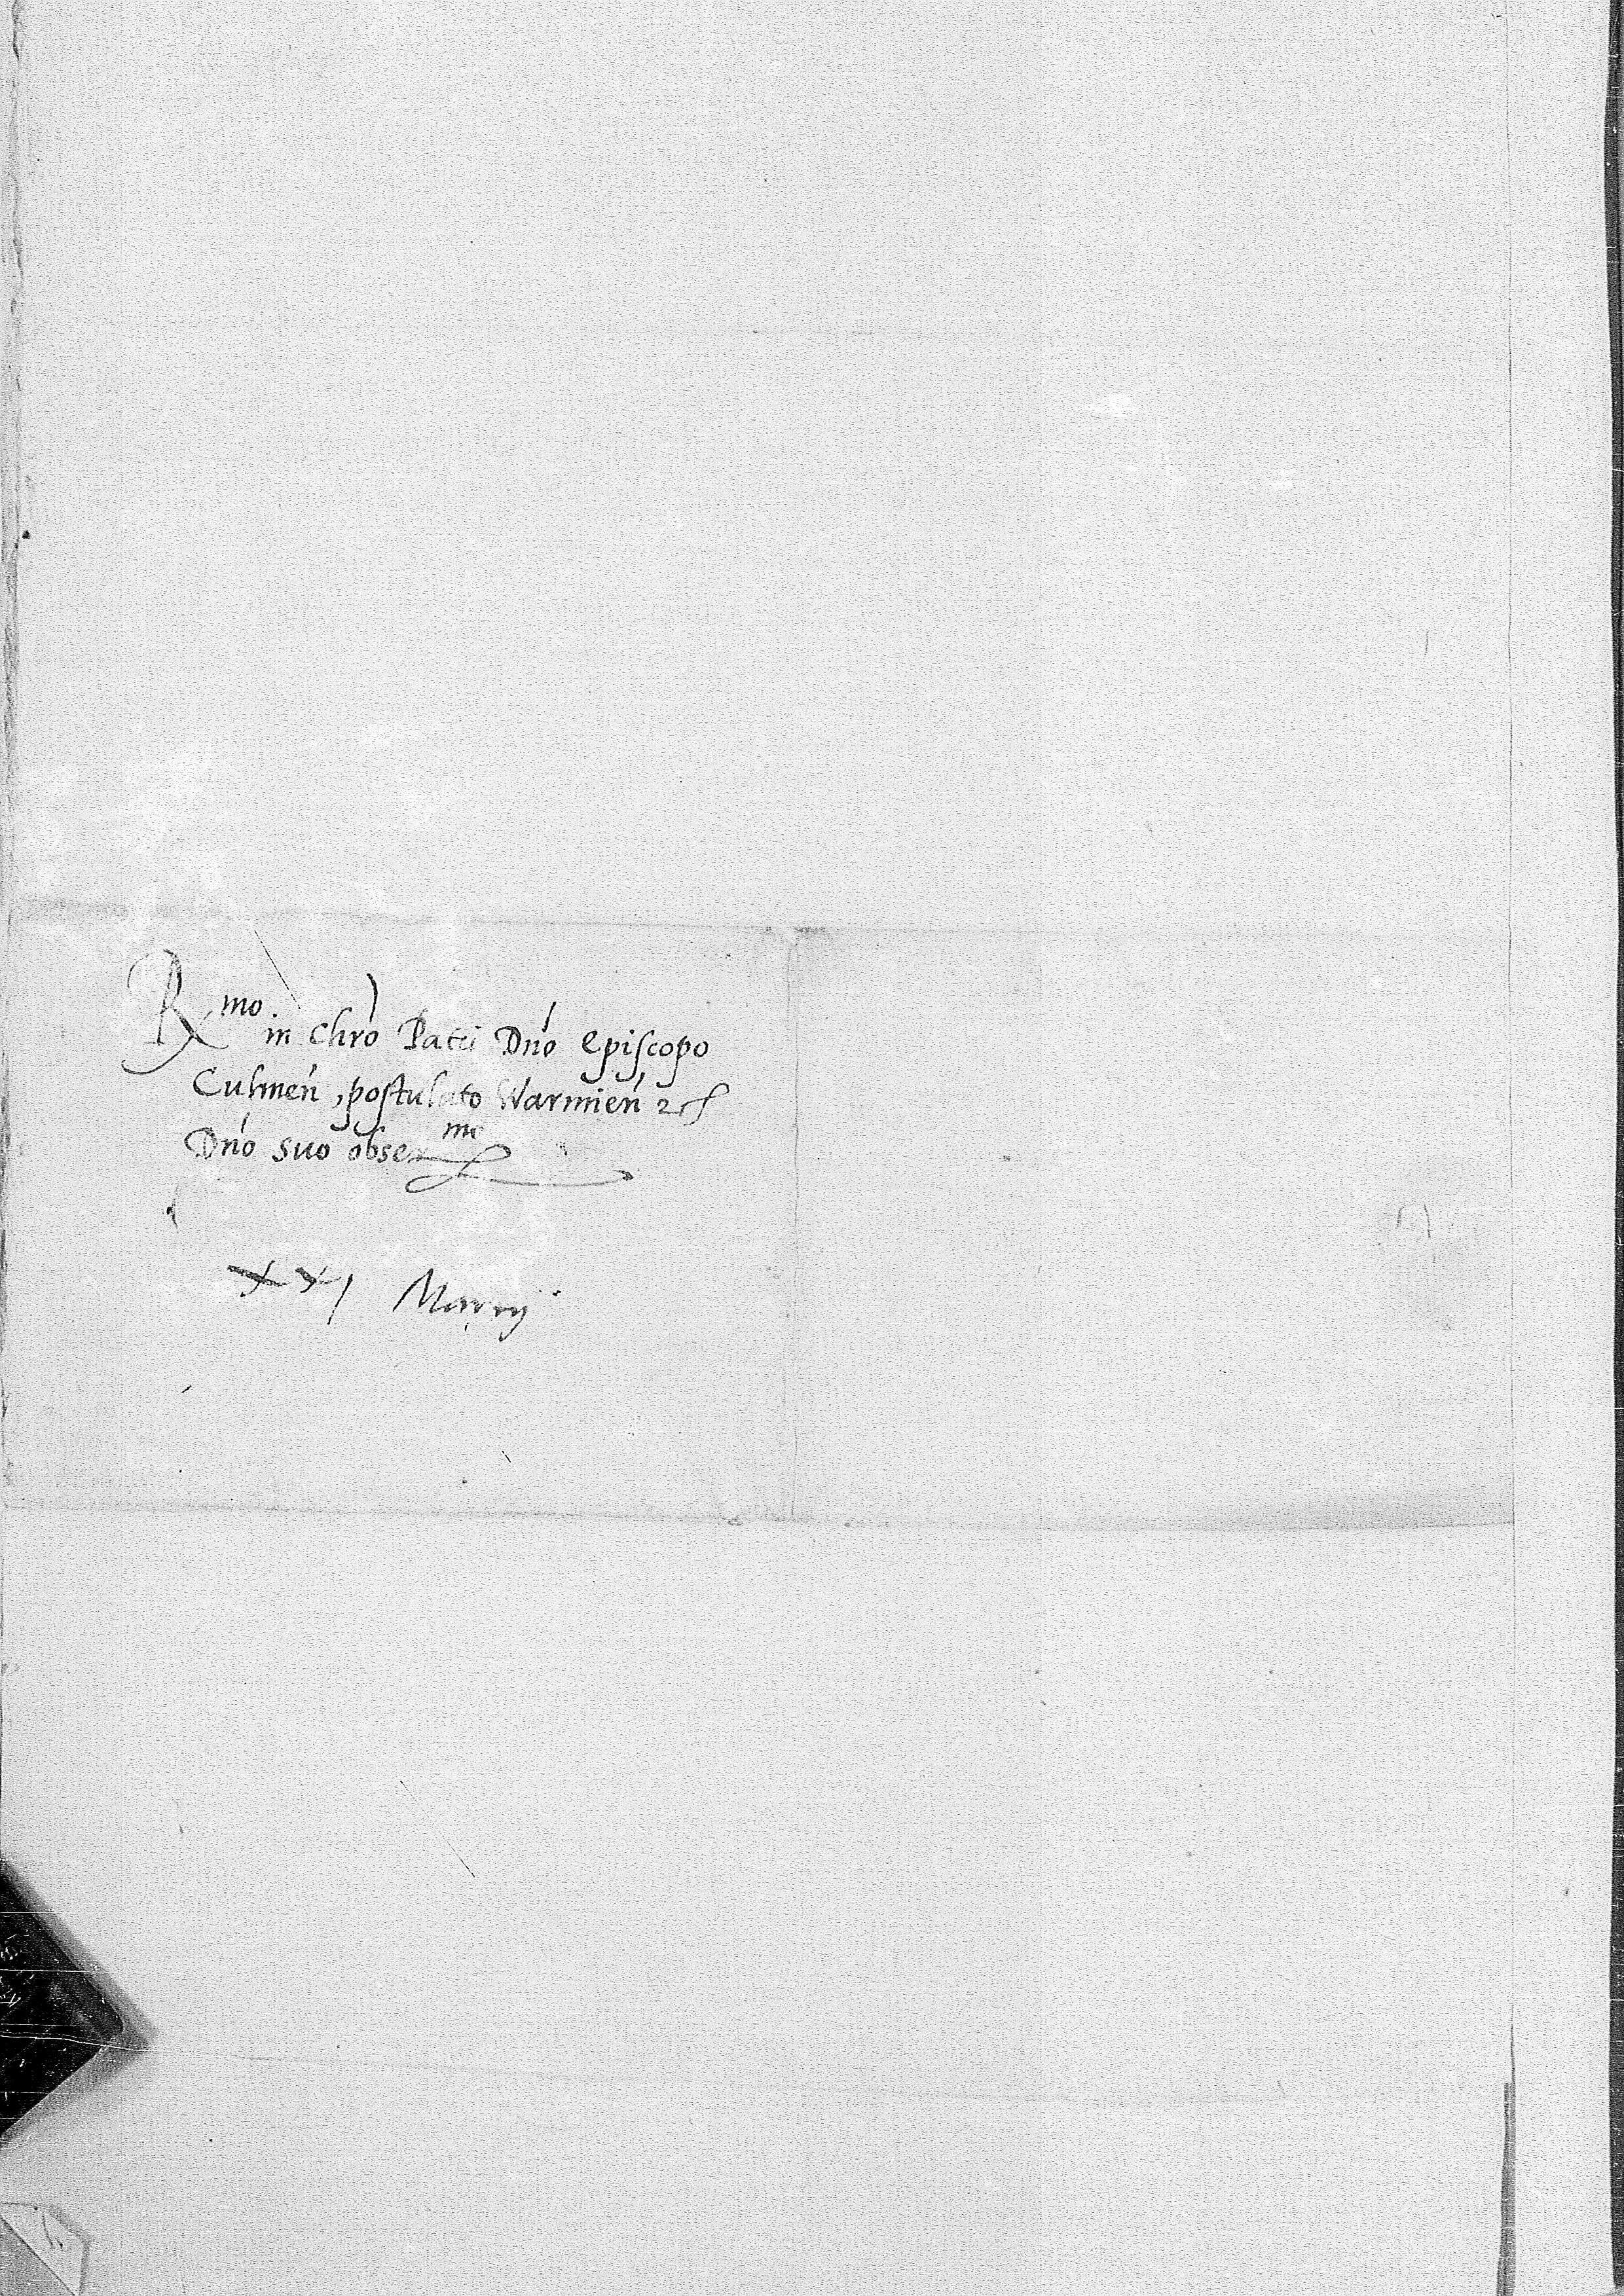 Rmo in Chro Patri Dno Episcopo
Culmen, postulato Warmien etc
Dno suo obsermo
XXI Marcij